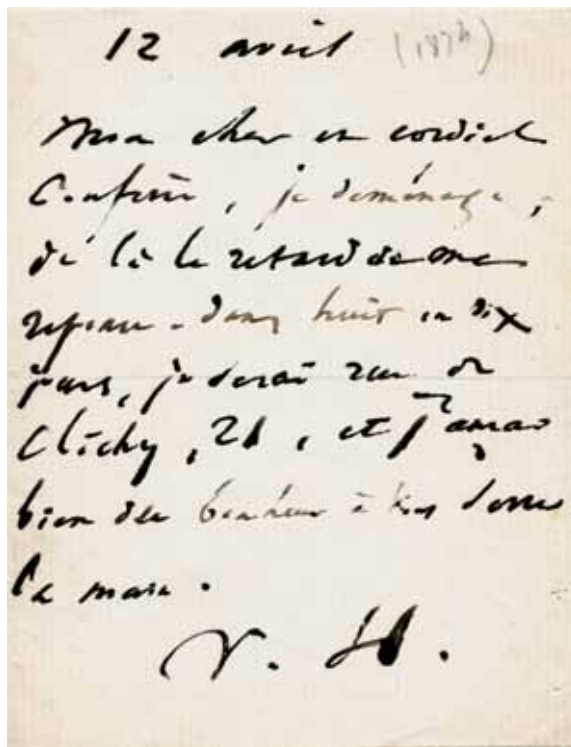 12 avril (1874)
Mon cher et cordial
Confrère, je déménage ;
de là le retard de ma
réponse. Dans huit ou dix
jours, je serai rue de
Clichy, 21, et j'aurai
bien du bonheur à vous serrer
la main.
V. H.